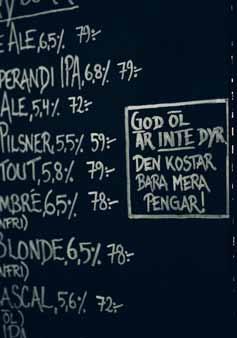 ALE, 6,5% 79:-
PERANDI IPA, 6,8% 79:-
ALE, 5,4% 72:-
PILSNER, 5,5% 59:-
TOUT, 5,8% 79:-
MBRÉ, 6,5% 78:-
NFRI)
BLONDE, 6,5% 78:-
NFRI)
ASCAL, 5,6% 72:-
ÖL)
IPA
GOD ÖL
ÄR INTE DYR
DEN KOSTAR
BARA MERA
PENGAR!